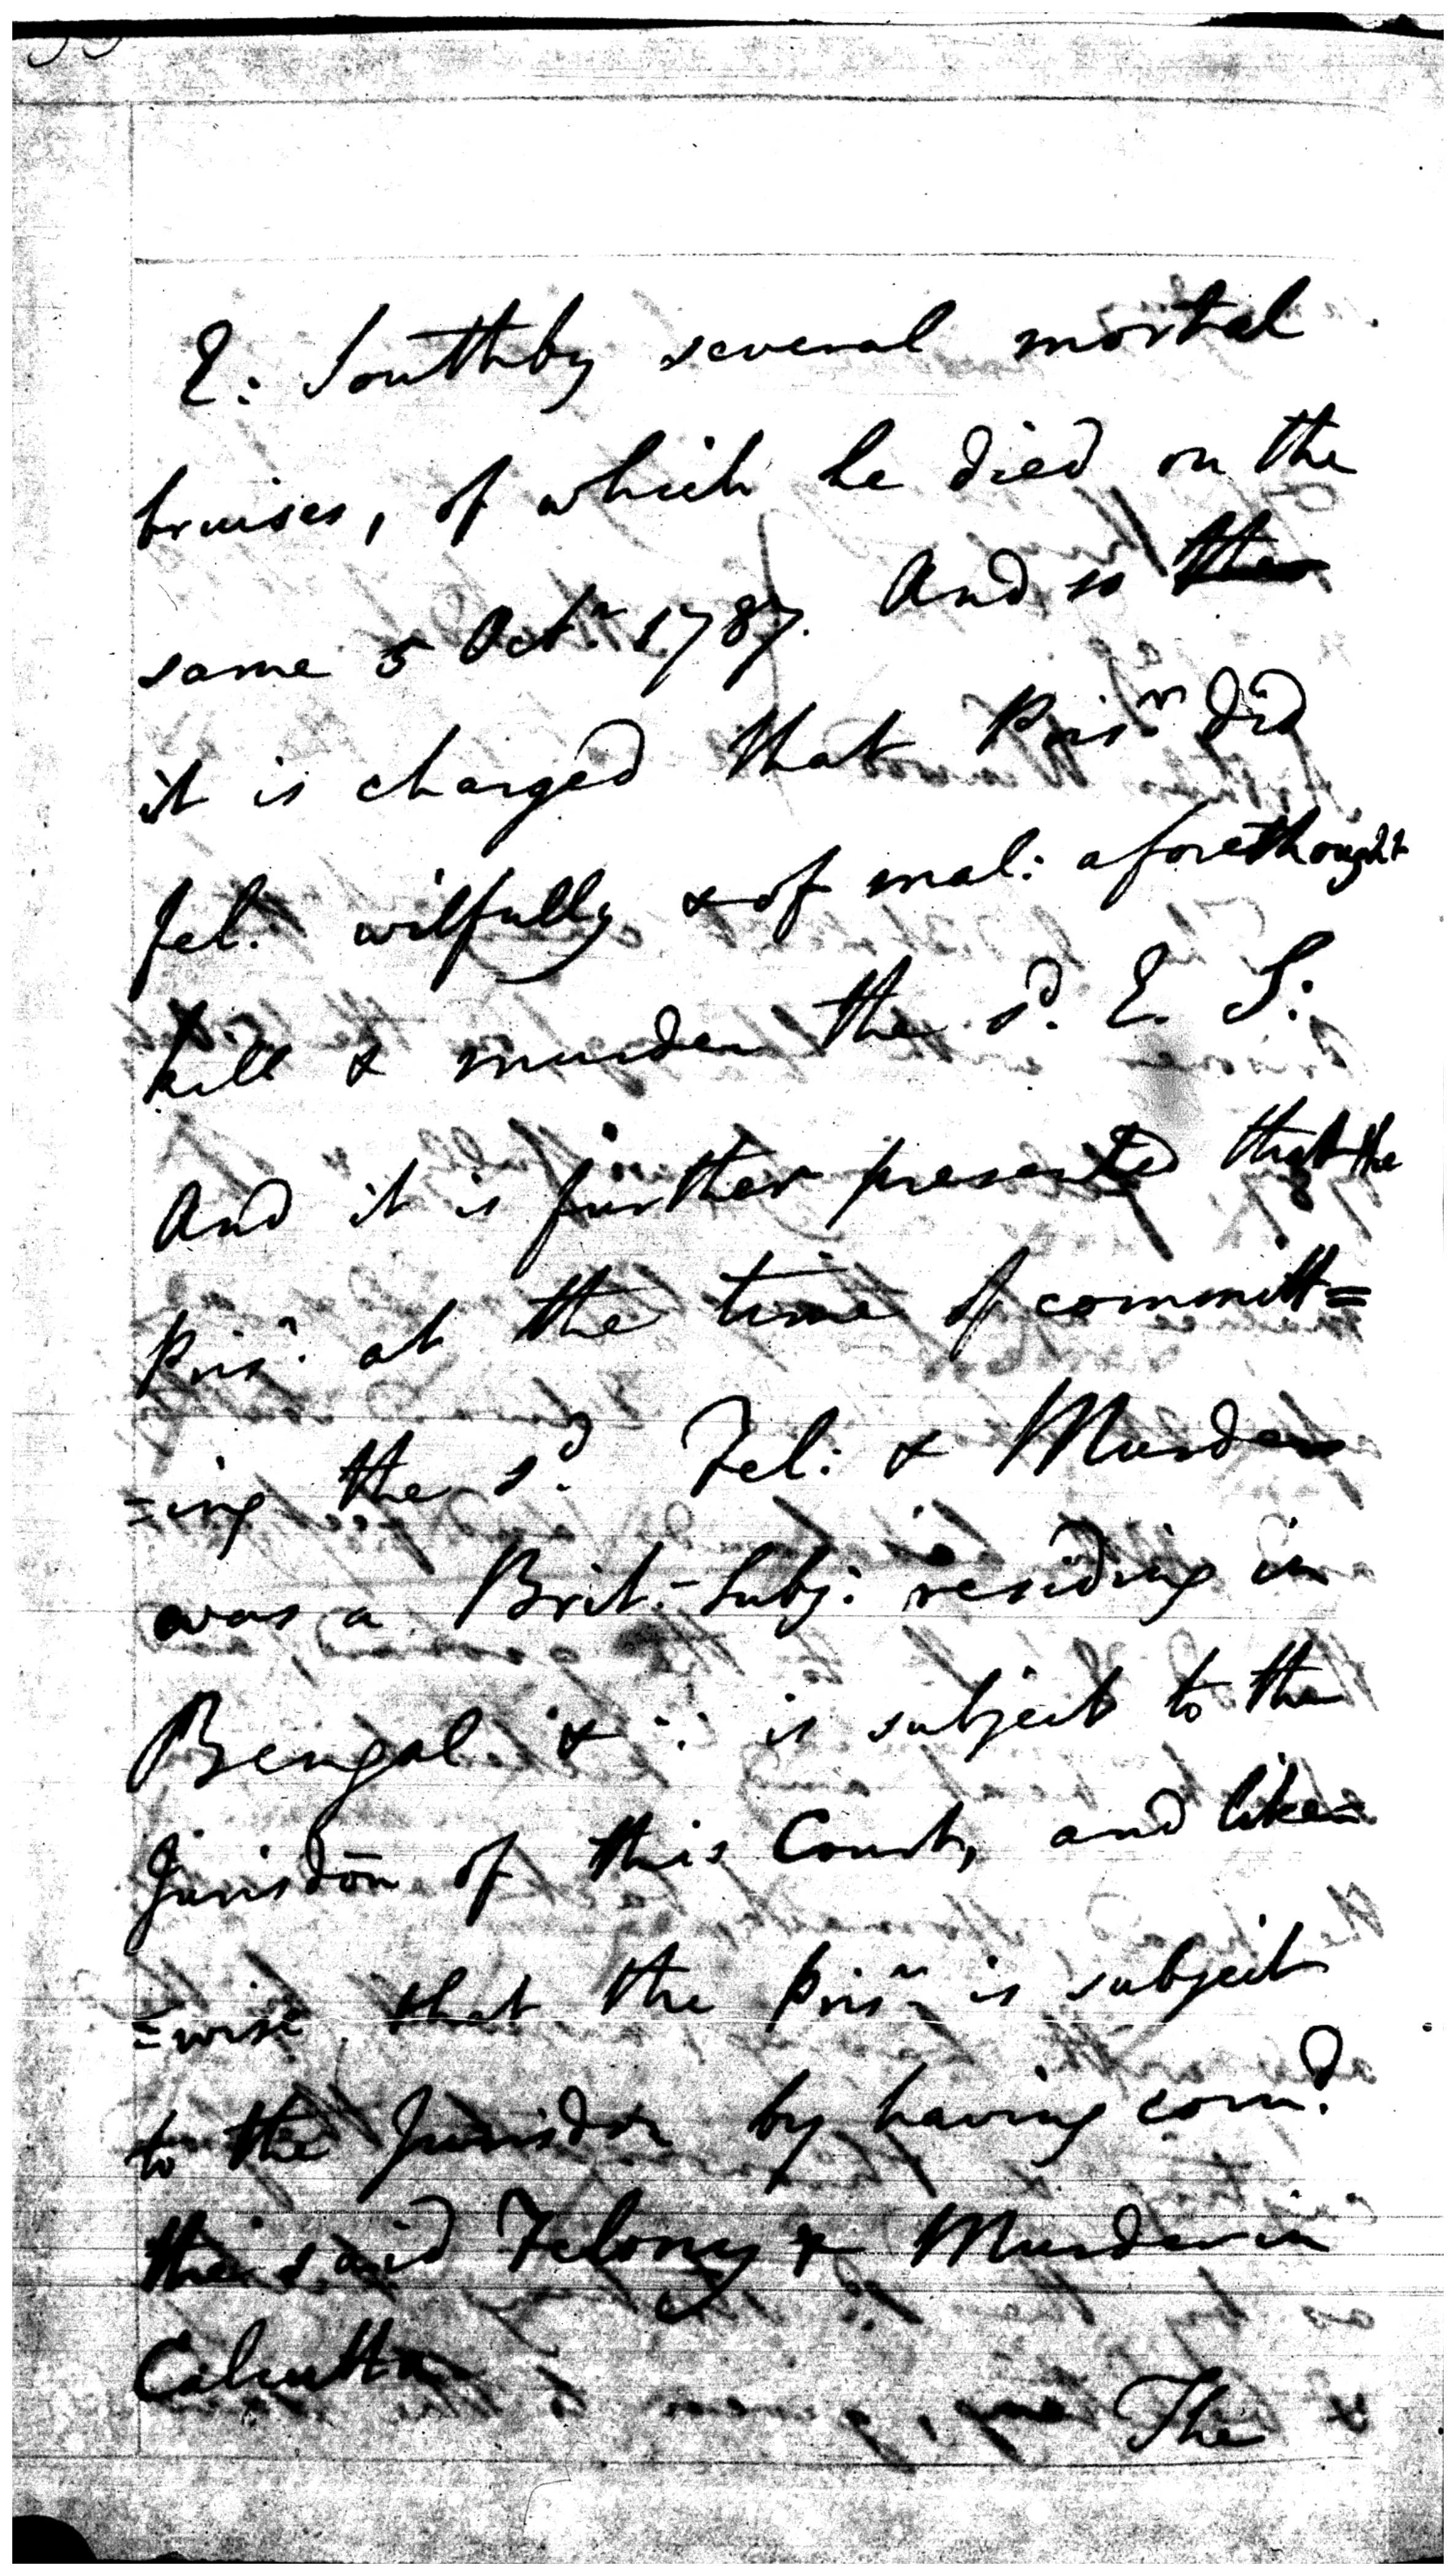 E: Southby several mortal
bruises, of which he died on the
same 5 Octr. 1787. And so the
it is charged that Prisr. did
fel: wilfully & of mal: aforethought
kill & murder the sd. E. S:
And it is further presented that the
Prisr. at the time of committ=
=ing the sd. Fel: & Murder
was a Brit: Subj: residing in
Bengal & ∵ is subject to the
Jurisdōn of this Court, and like=
=wise that the Prisr. is subject
to the Jurisdōn by having comd.
the said Felony & Murder in
Calcutta
The